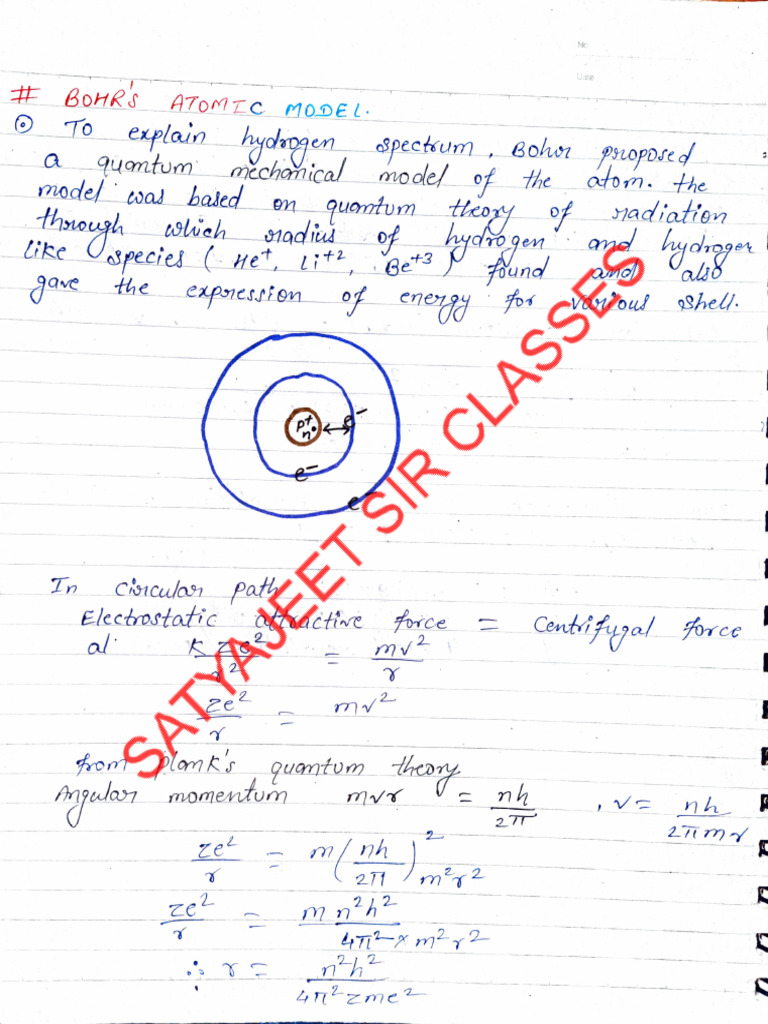 No
Date
# BOHR'S ATOMIC MODEL.
⊙ To explain hydrogen spectrum, Bohr proposed
a quantum mechanical model of the atom. the
model was based on quantum theory of radiation
through which radius of hydrogen and hydrogen
like species (He⁺, Li⁺², Be⁺³) found and also
gave the expression of energy for various shell.
p⁺
n•
e⁻
e⁻
e⁻
In circular path
Electrostatic attractive force = Centrifugal force
al. KZe²/r² = mv²/r
ze²/r = mv²
from plank's quantum theory
Angular momentum mvr = nh/2π , v = nh/2πmr
ze²/r = m(nh/2π)² m²r²
ze²/r = m n²h²/4π² × m²r²
∴ r = n²h²/4π²zme²
SATYAJEET SIR CLASSES